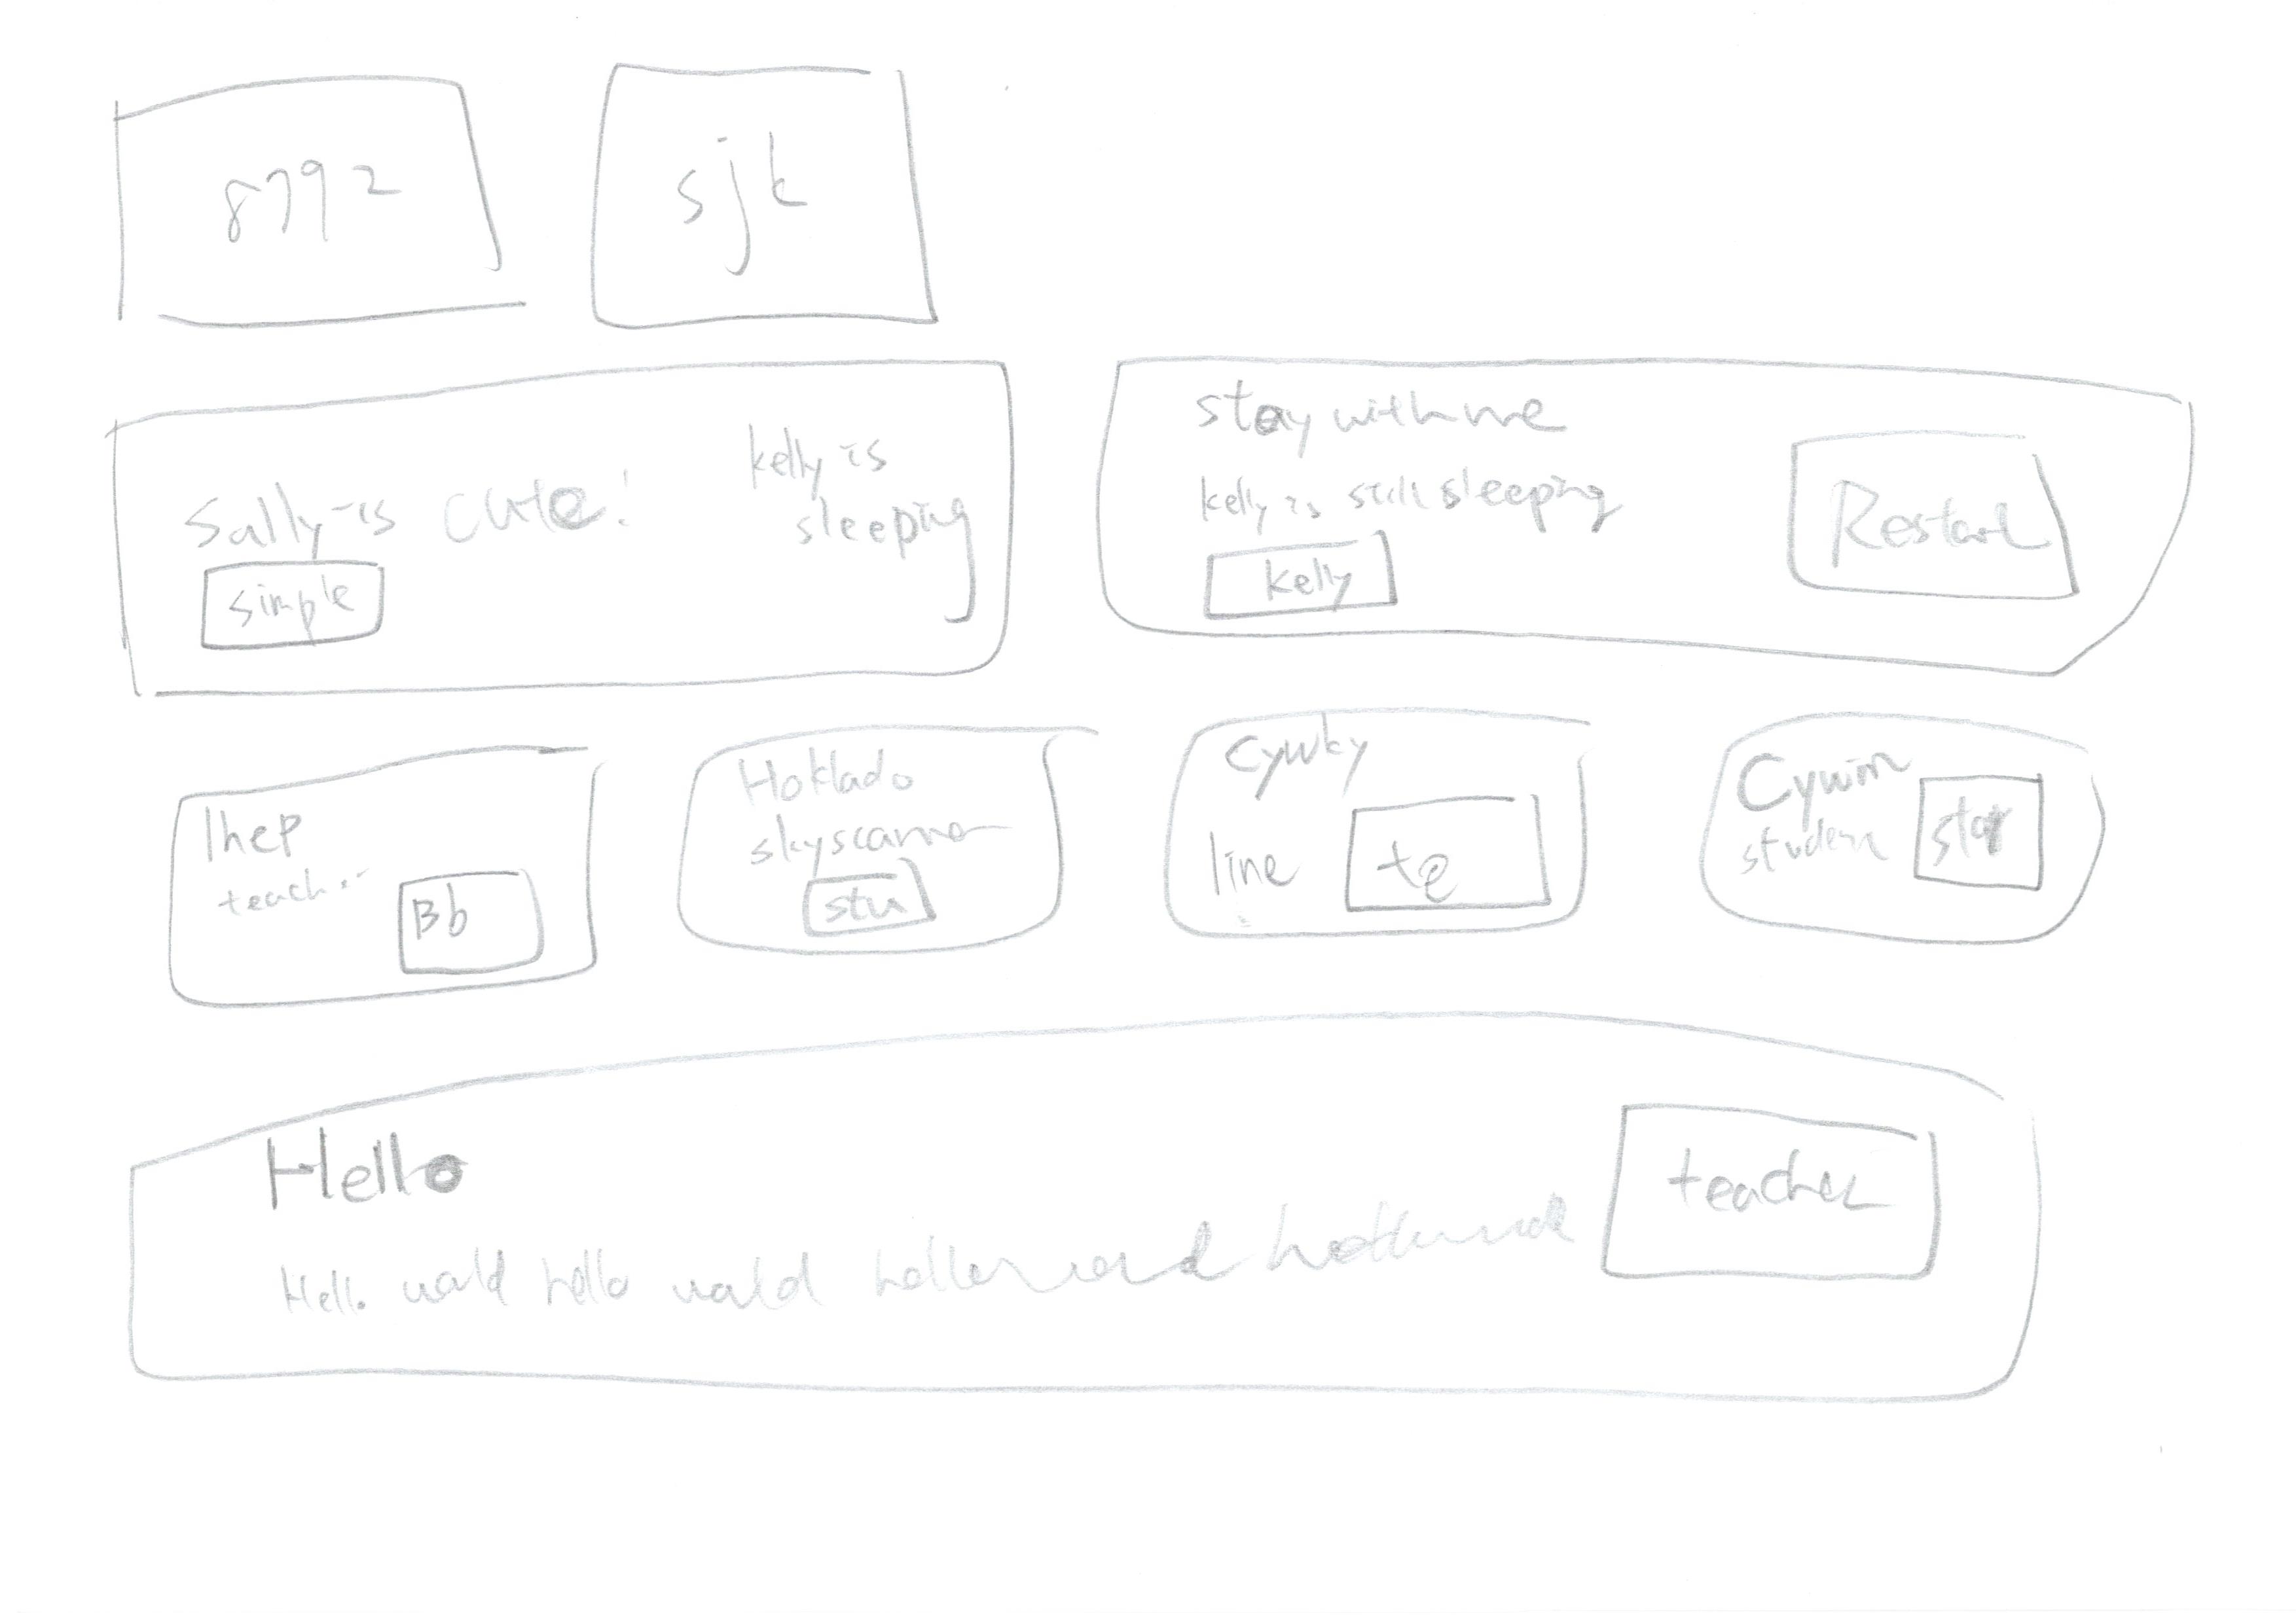 8792
sjk
Sally is cute!
simple
kelly is
sleeping
stay with me
kelly is still sleeping
kelly
Restart
lhep
teacher
Bb
Hoklado
skyscanner
stu
Cywky
line
te
Cywim
student
Hello
Hello world hello world hello world
teacher